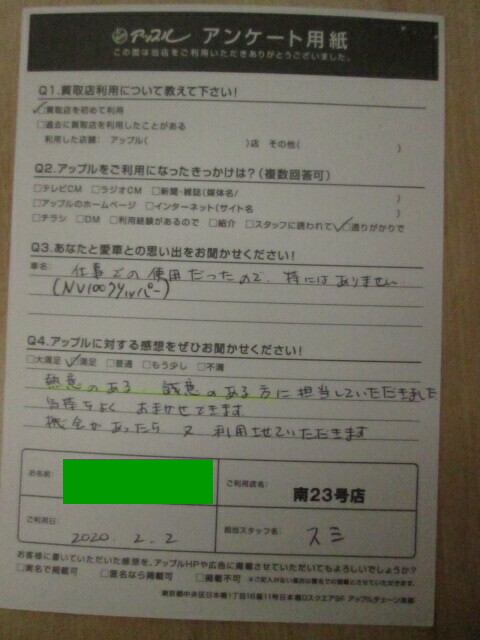 アップル アンケート用紙
この度は当店をご利用いただきありがとうございました。
Q1.買取店利用について教えて下さい!
☑買取店を初めて利用
□過去に買取店を利用したことがある
利用した店舗: アップル( )店 その他( )
Q2.アップルをご利用になったきっかけは?(複数回答可)
□テレビCM □ラジオCM □新聞・雑誌(媒体名/ )
□アップルのホームページ □インターネット(サイト名 )
□チラシ □DM □利用経験があるので □紹介 □スタッフに誘われて ☑通りがかりで
Q3.あなたと愛車との思い出をお聞かせください!
車名: 仕事での使用だったので、特にはありません
(NV100クリッパー)
Q4.アップルに対する感想をぜひお聞かせください!
□大満足 ☑満足 □普通 □もう少し □不満
熱意のある 誠意のある方に担当していただきました
気持ちよく おまかせできます
機会があったら 又 利用させていただきます
お名前:
ご利用店名: 南23号店
ご利用日: 2020. 2. 2
担当スタッフ名: スミ
お客様に書いていただいた感想を、アップルHPや広告に掲載させていただいてもよろしいでしょうか?
□実名で掲載可 □匿名なら掲載可 □掲載不可 ※ご記入がない場合は匿名での掲載とさせていただきます。
東京都中央区日本橋1丁目16番11号日本橋Dスクエア9F アップルチェーン本部